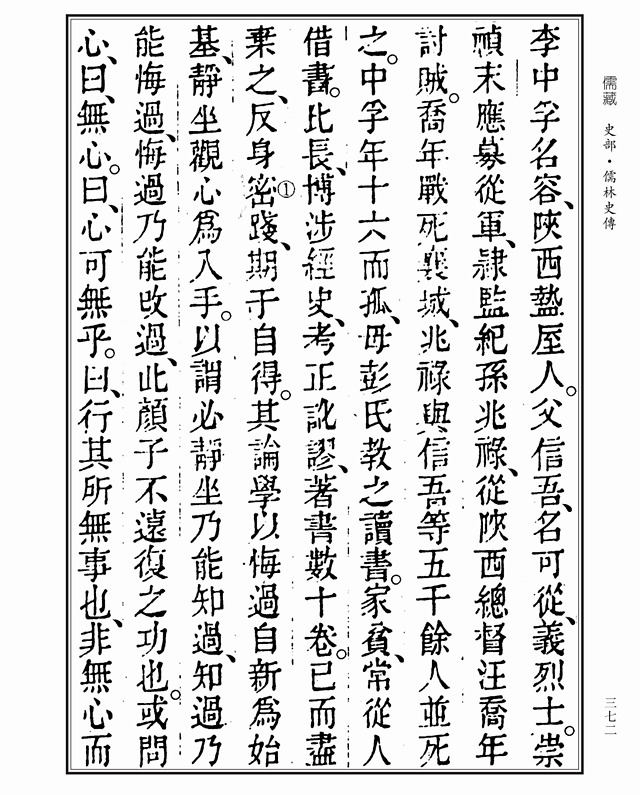 儒藏 史部·儒林史傳
李中孚名容、陝西盩厔人。父信吾、名可從、義烈士。崇
禎末應募從軍、隸監紀孫兆祿、從陝西總督汪喬年
討賊。喬年戰死襄城、兆祿與信吾等五千餘人並死
之。中孚年十六而孤、母彭氏教之讀書。家貧、常從人
借書。比長、博涉經史、考正訛謬、著書數十卷。已而盡
棄之、反身密①踐、期于自得。其論學以悔過自新爲始
基、靜坐觀心爲入手。以謂必靜坐乃能知過、知過乃
能悔過、悔過乃能改過、此顏子不遠復之功也。或問
心、曰、無心。曰、心可無乎。曰、行其所無事也、非無心而
三七二